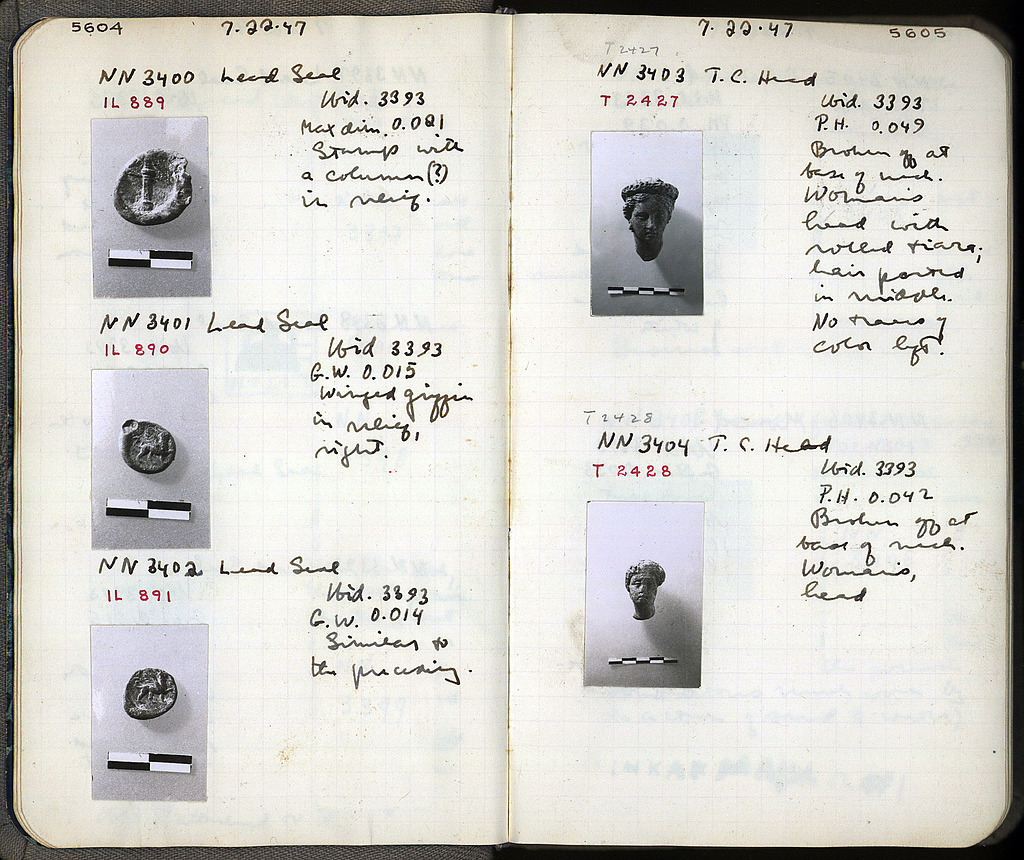 5604
7.22.47
NN 3400 Lead Seal
IL 889
Ibid. 3393
Max dim. 0.021
Stamp with
a column(?)
in relief.
NN 3401 Lead Seal
IL 890
Ibid 3393
G.W. 0.015
Winged griffin
in relief,
right.
NN 3402 Lead Seal
IL 891
Ibid. 3393
G.W. 0.014
Similar to
the preceding.
7.22.47
5605
T 2427
NN 3403 T.C. Head
T 2427
Ibid. 3393
P.H. 0.049
Broken off at
base of neck.
Woman's
head with
rolled tiara;
hair parted
in middle.
No traces of
color left.
T 2428
NN 3404 T.C. Head
T 2428
Ibid. 3393
P.H. 0.042
Broken off at
base of neck.
Woman's,
head